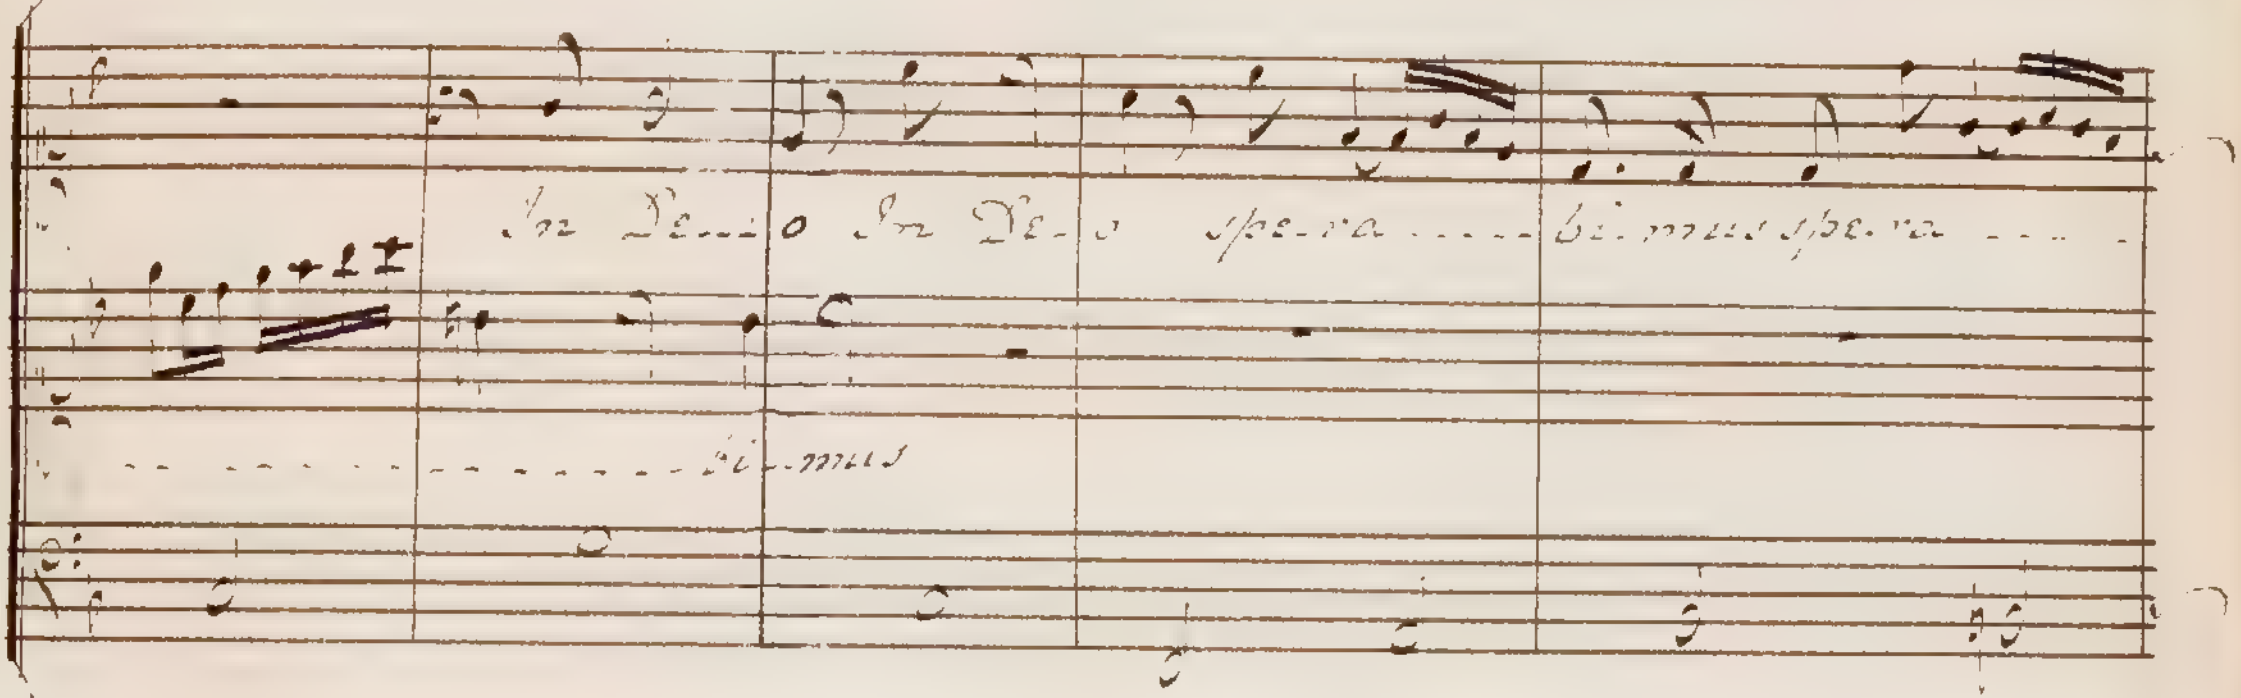 In De---o In De-o spe-ra-----bi-mus spe-ra----
--------------bi-mus